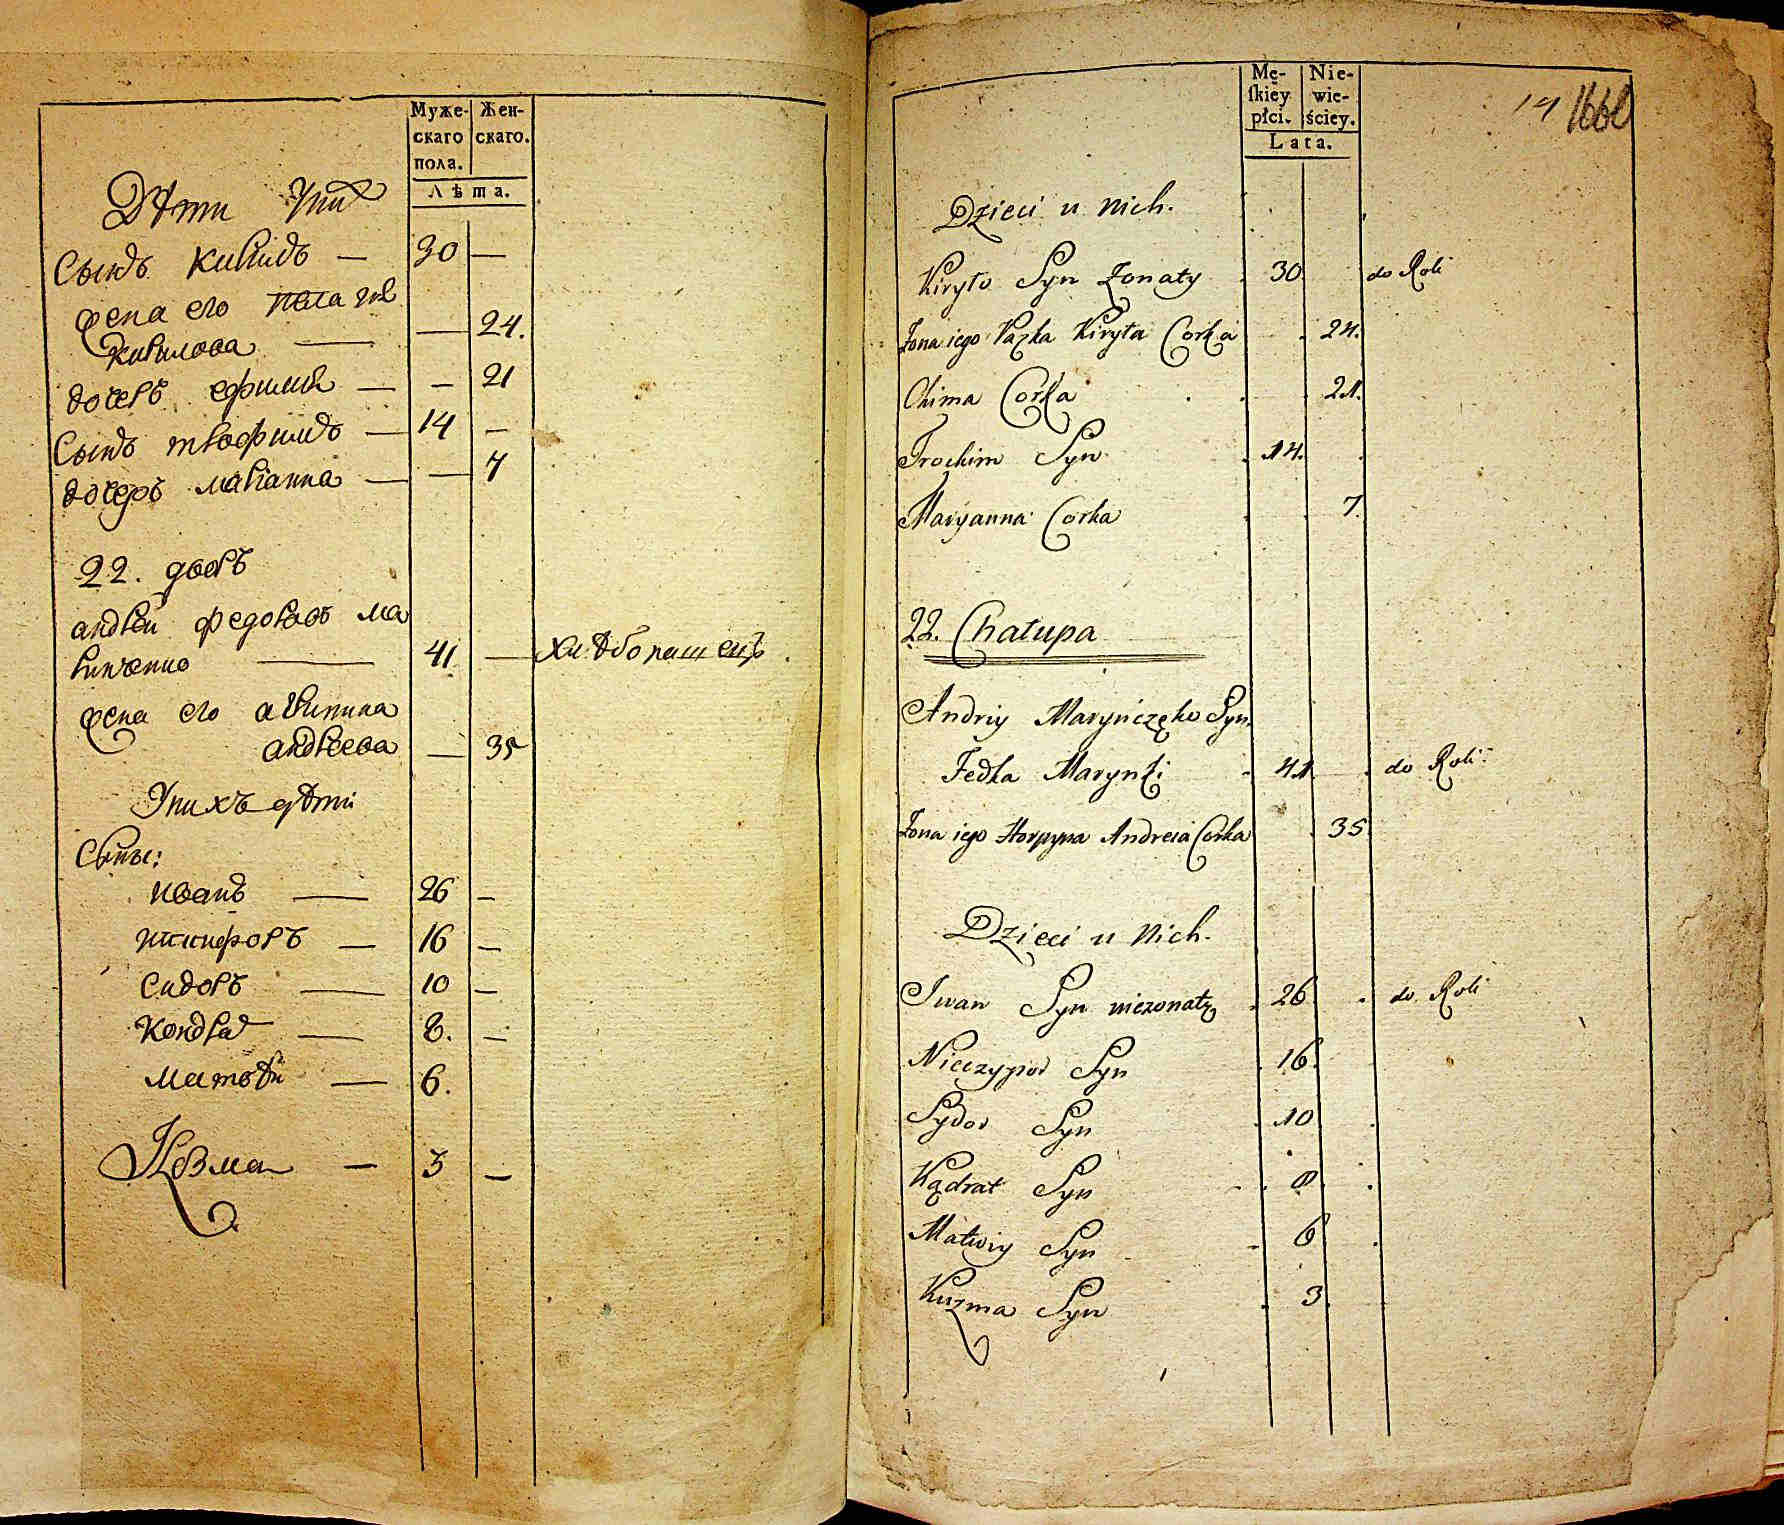 Муже-
скаго
пола.
Жен-
скаго.
Лѣта.
Дѣти
Сынъ Кирилъ — 30 —
жена его
Кирилова — — 24.
дочеръ ефимия — — 21
Сынъ трофимъ — 14 —
дочеръ мариянна — — 7
22. дворъ
андрей федоровъ ма
ринченко — 41 — хлѣбопашецъ.
жена его агрипина
андреева — 35
Унихъ дѣти
Сыны:
иванъ — 26 —
никифоръ — 16 —
сидоръ — 10 —
Кондрат — 8. —
матвѣй — 6.
Козма — 3 —
Mę-
skiey
płci.
Nie-
wie-
ściey.
Lata.
14 1660
Dzieci u nich.
Kiryło Syn żonaty 30 do Roli
Żona iego Pazka Kiryła Corka 24.
Chima Corka 21.
Trochim Syn 14.
Maryanna Corka 7.
22. Chałupa
Andriy Maryńczęko Syn
Fedka Marynki 41 do Roli
Żona iego Horpyna Andreia Corka 35
Dzieci u nich.
Iwan Syn nieżonaty 26 do Roli
Nieczypor Syn 16
Sydor Syn 10
Kądrat Syn 8
Matwiy Syn 6
Kuzma Syn 3